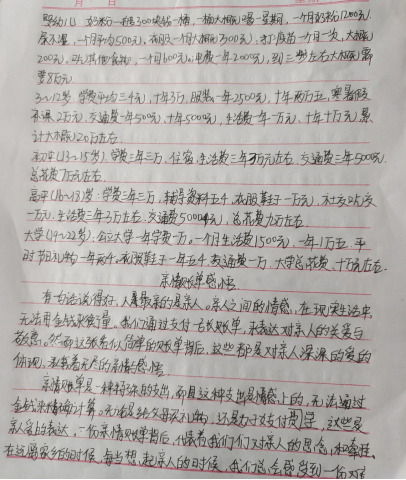 婴幼儿:奶粉一桶300块钱一桶,一桶大概喝一星期,一个月奶粉1200元.
尿不湿,一个月平均500元,衣服一个月大概300元,打疫苗一个月一次,大概
200元,其他食物,一个月600元,电费一年2000元,到三岁左右大概需
要8万元.
3~12岁 学费平均三千元,十年3万,服装一年2500元,十年两万五,寒暑假
2万元,交通费一年500元,十年5000元,生活费一年一万元,十年十万元,累
计大概20万左右.
初中(13~15岁).学费三年三万,住宿,生活费三年3万元左右,交通费三年5000元.
总花费7万元左右.
高中(16~18)岁:学费三年三万,辅导资料五千,衣服鞋子一万元,
一万元,生活费三年3万左右,交通费5000元,总花费9万左右
大学(19~22岁):公立大学一年学费一万.一个月生活费1500元,一年1万五,平
时节日礼物一年两千.衣服鞋子一年五千,交通费一万,大学总花费、十万元左右.
亲情账单感悟
有句话说得好,人最亲的是亲人。亲人之间的情感,在现实生活中,
无法用金钱来衡量。我们通过支付一长账单,来表达对亲人的关爱与
敬意。然而这张看似简单的账单背后,这些都是对亲人深深的爱的
体现,承载着无尽的亲情与感悟.
亲情账单是一种特殊的支出,而且这种支出是情感上的,无法通过
金钱来精确计算。无论是给父母买礼物,还是为子女付费学,这些是
亲人爱的表达,一份亲情账单背后,代表着我们们对亲人的思念,和牵挂.
在远离家乡的时候,每当想起亲人的时候,我们总会感受到一份对